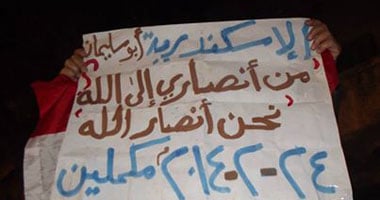 الإسكندرية أبو سليمان
"من أنصاري إلى الله"
نحن أنصار الله
٢٤-٢-٢٠١٤م مكملين